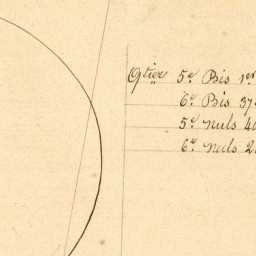 Qtier 5e Bis 1er
6e Bis 37
5e nuls 40
6e nuls 2